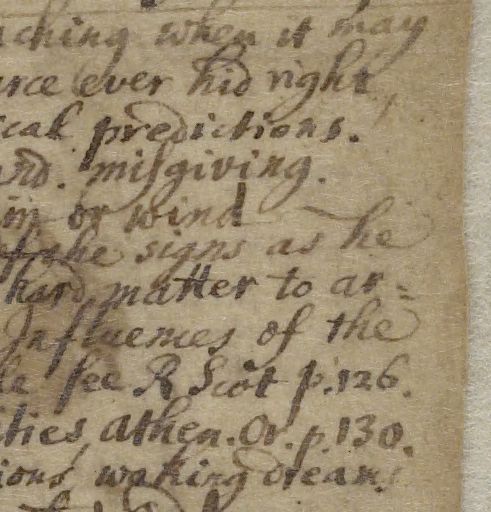 aching when it may
arce ever hid right,
ical predictions.
and. misgiving.
or wind
of the signs as he
hard matter to ar=
Influences of the
see R Scot p. 126.
ities, athen. Or. p. 130.
ions, waking dreams